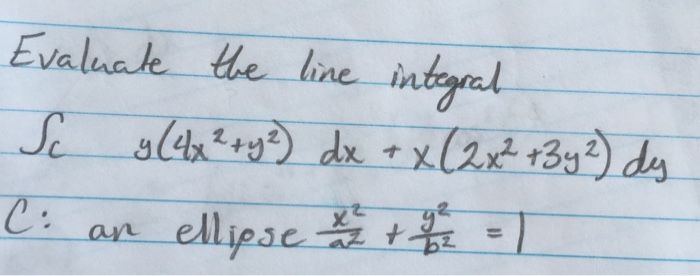 Evaluate the line integral
∫c y(4x²+y²) dx + x(2x²+3y²) dy
C: an ellipse x²/a² + y²/b² = 1